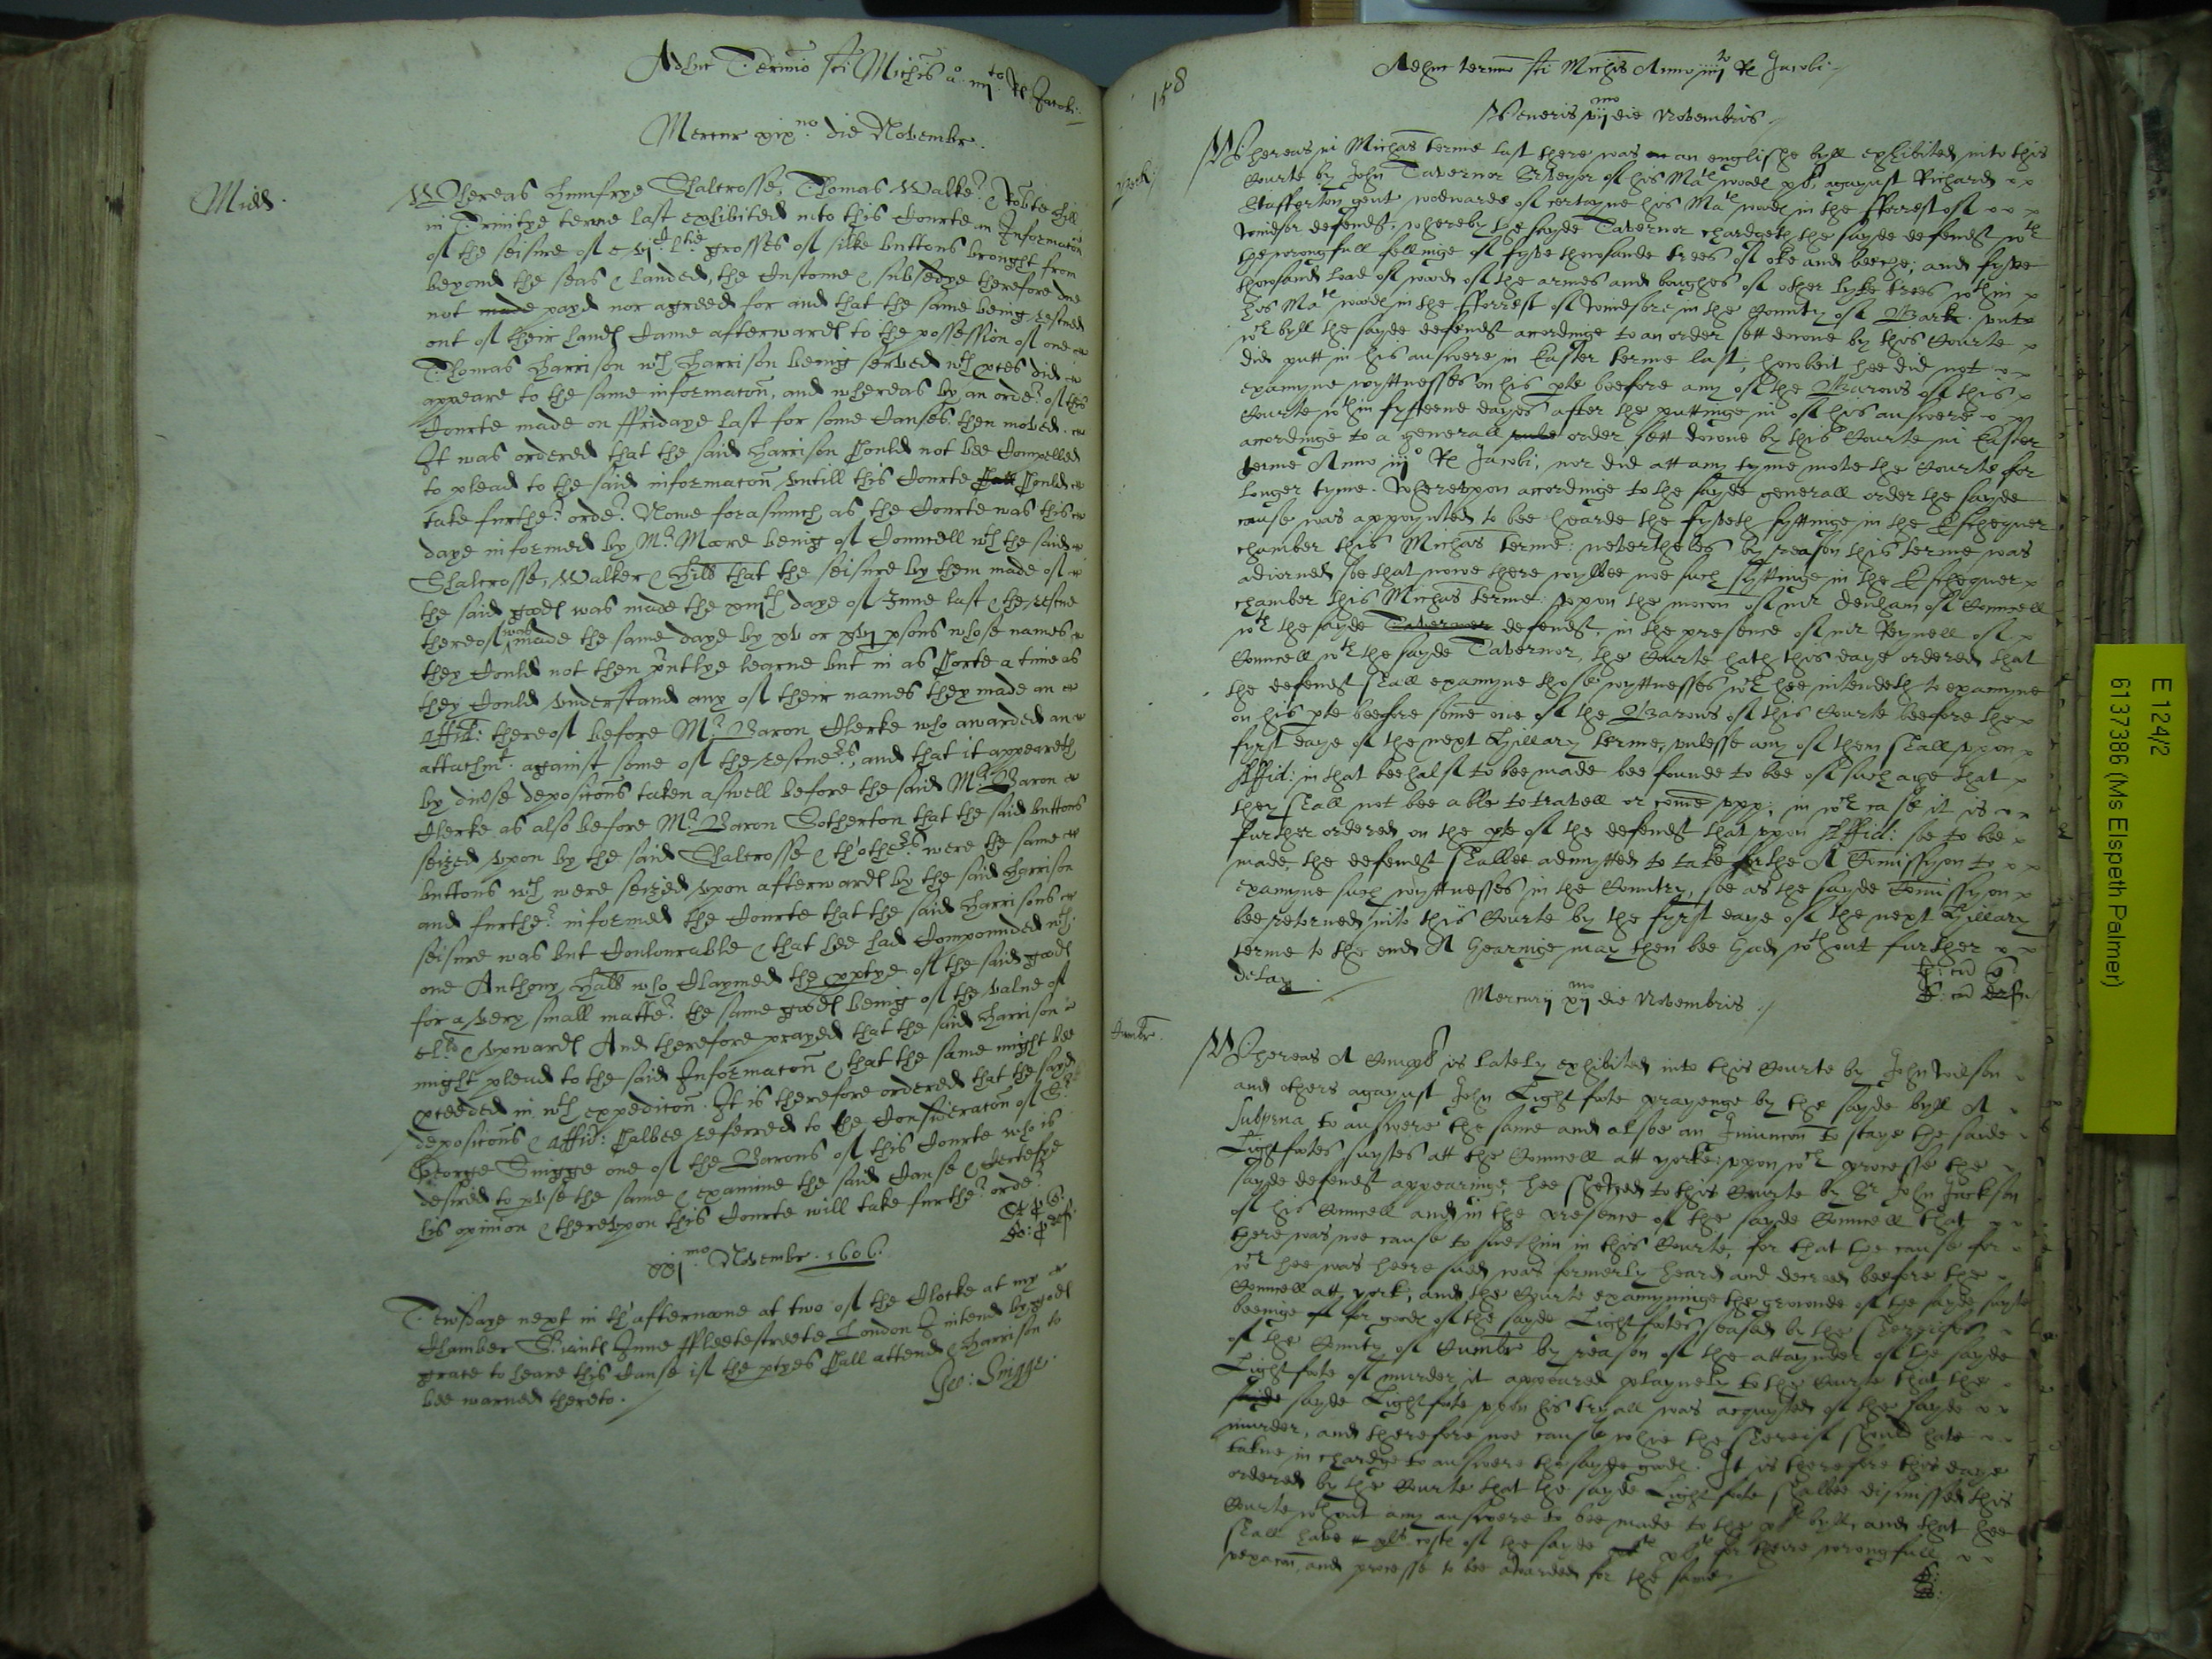 Adhuc Termio sci Michis ao iiijto Rs Jacobi
Mercur xixno die Novembr.
Midd.
Whereas Humfrye Shalcrosse, Thomas Walker & Hill
in Trinitye terme last exhibited into this Courte an Informacon
of the seisure of grosses of silke buttons brought from
beyond the seas & landed, the Custome & subsedye therefore due
not made payd nor agreed for and that the same being rescued
out of their hands Came afterwards to the possession of one
Thomas Harrison wch Harrison being served wth pces did
appeare to the same informacon, and whereas by an order of this
Courte made on Fridaye last for some Causes then moved
It was ordered that the said Harrison should not bee Compelled
to plead to the said informacon untill this Courte shall should
take further order. Nowe forasmuch as the Courte was this
daye informed by Mr Moore being of Councell wth the said
Shalcrosse, Walker & Hill that the seisure by them made of
the said goods was made the daye of June last & the rescue
thereof was made the same daye by xv or xvj psons whose names
they Could not then pntlye learne but in as shorte a time as
they Could understand any of their names they made an
affid: thereof before Mr Baron Clerke who awarded an
attachmt against some of the rescuers, and that it appeareth
by divse deposicons taken aswell before the said Mr Baron
Clerke as also before Mr Baron Sotherton that the said buttons
seized upon by the said Shalcrosse & thothers were the same
buttons wch were seized upon afterwards by the said Harrison
and further informed the Courte that the said Harrisons
seisure was but Coulourable & that hee had Compounded wth
one Anthony Hall who Claymed the pptye of the said goods
for a very small matter the same goods being of the value of
cli & upwards And therefore prayed that the said Harrison
might plead to the said Informacon & that the same might bee
pceeded in wth expedicon. It is therefore ordered that the sayd
deposicons & affid: shalbee referred to the Consideracon of Sr
George Snigge one of the Barons of this Courte who is
desired to pvse the same & examine the said Cause & Certefye
his opinion & thereupon this Courte will take further order
xximo Novembr. 1606.
Tewsdaye next in thafternoone at two of the Clocke at my
Chamber Sriants Inne Fleetestreete London I intend by gods
grace to heare this Cause if the ptyes shall attend & Harrison to
bee warned thereto.
Geo: Snigge
158
Adhuc termio sci Michis Anno iiijto Rs Jacobi
Veneris die Novembris
Whereas in Michas terme last there was an an englishe byll exhibited into this
Courte by John Tavernor Srveyor of his Mats woods agaynst Richard
Stafferton gent woodwarde of certayne his Mats woods in the Forrest of
Windsor defendt, whereby the sayde Tavernor chardgeth the sayde defendt wth
the wrongfull fellinge of fyve thowsande trees of oke and beeche, and fyve
thowsand load of wood of the armes and boughes of other lyke trees wthin
his Mats woods in the Forrest of Windsore in the County of Bark. unto
wch byll the sayde defendt accordinge to an order sett downe by this Courte
did putt in his answere in Easter terme last, howbeit hee did not
examyne wyttnesses on his pte beefore any of the Barons of this
Courte wthin fyfteene dayes after the puttinge in of his answere
accordinge to a generall rule order sett downe by this Courte in Easter
terme Anno iijo Rs Jacobi, nor did att any tyme move the Courte for
longer tyme. Whereupon accordinge to the sayde generall order the sayde
cause was appoynted to bee hearde the fyveth syttinge in the Exchequer
chamber this Michas terme: neverthelesse by reason this terme was
adiorned soe that nowe there wylbee noe such syttinge in the Exchequer
chamber this Michas terme. upon the mocon of mr Denham of Councell
wth the sayde Tavernor defendt, in the presence of mr Reynell of
Councell wth the sayde Tavernor, the Courte hath this daye ordered that
the defendt shall examyne those wyttnesses wch hee intendeth to examyne
on his pte beefore some one of the Barons of this Courte beefore the
fyrst daye of the next Hillary terme, unlesse any of them shall uppon
Affid: in that beehalf to bee made bee founde to bee of such age that
they shall not bee able to travell or come upp: in wch case it is
further ordered on the pte of the defendt that uppon Affid: soe to bee
made, the defendt shalbee admytted to take furthe A Comissyon to
examyne such wyttnesses in the Countrey, soe as the sayde Comissyon
bee retorned into this Courte by the fyrst daye of the next Hillary
terme to the end A Hearinge may then bee had wthout further
delay
Mercurij die Novembris
Cumbr.
Whereas A is lately exhibited into this Courte by John Wilson
and others agaynst John Lightfoote prayenge by the sayde byll A
Subpena to answere the same and alsoe an Iniuncon to staye the saide
Lightfootes suytes att the Councell att yorke: uppon wch processe the
sayde defendt appearinge, hee shewed to this Courte by Sr John Jackson
of his Councell and in the presence of the sayde Councell that
there was noe cause to sue him in this Courte, for that the cause for
wch hee was heere sued was formerly heard and decreed beefore the
Councell att york, and the Courte examyninge the grownde of the sayde suyte
beeinge for goods of the sayde Lightfootes seased by the Sherriffes
of the County of Cumbr by reason of the attaynder of the sayde
Lightfoote of murder, it appeared playnely to the Courte that the
saide sayde Lightfoote uppon his tryall was acquyted of the sayde
murder, and therefore noe cause whie the Shereif should have
taken in chardge to answere the sayde goods. It is therefore this daye
ordered by the Courte that the sayde Lightfoote shalbee dismissed this
Courte wthout any answere to bee made to the byll, and that hee
shall have costs of the sayde for theire wrongfull
vexacon, and processe to bee awarded for the same
E 124/2
6137386 (Ms Elspeth Palmer)